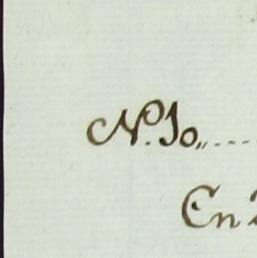 N. 10,,....
En